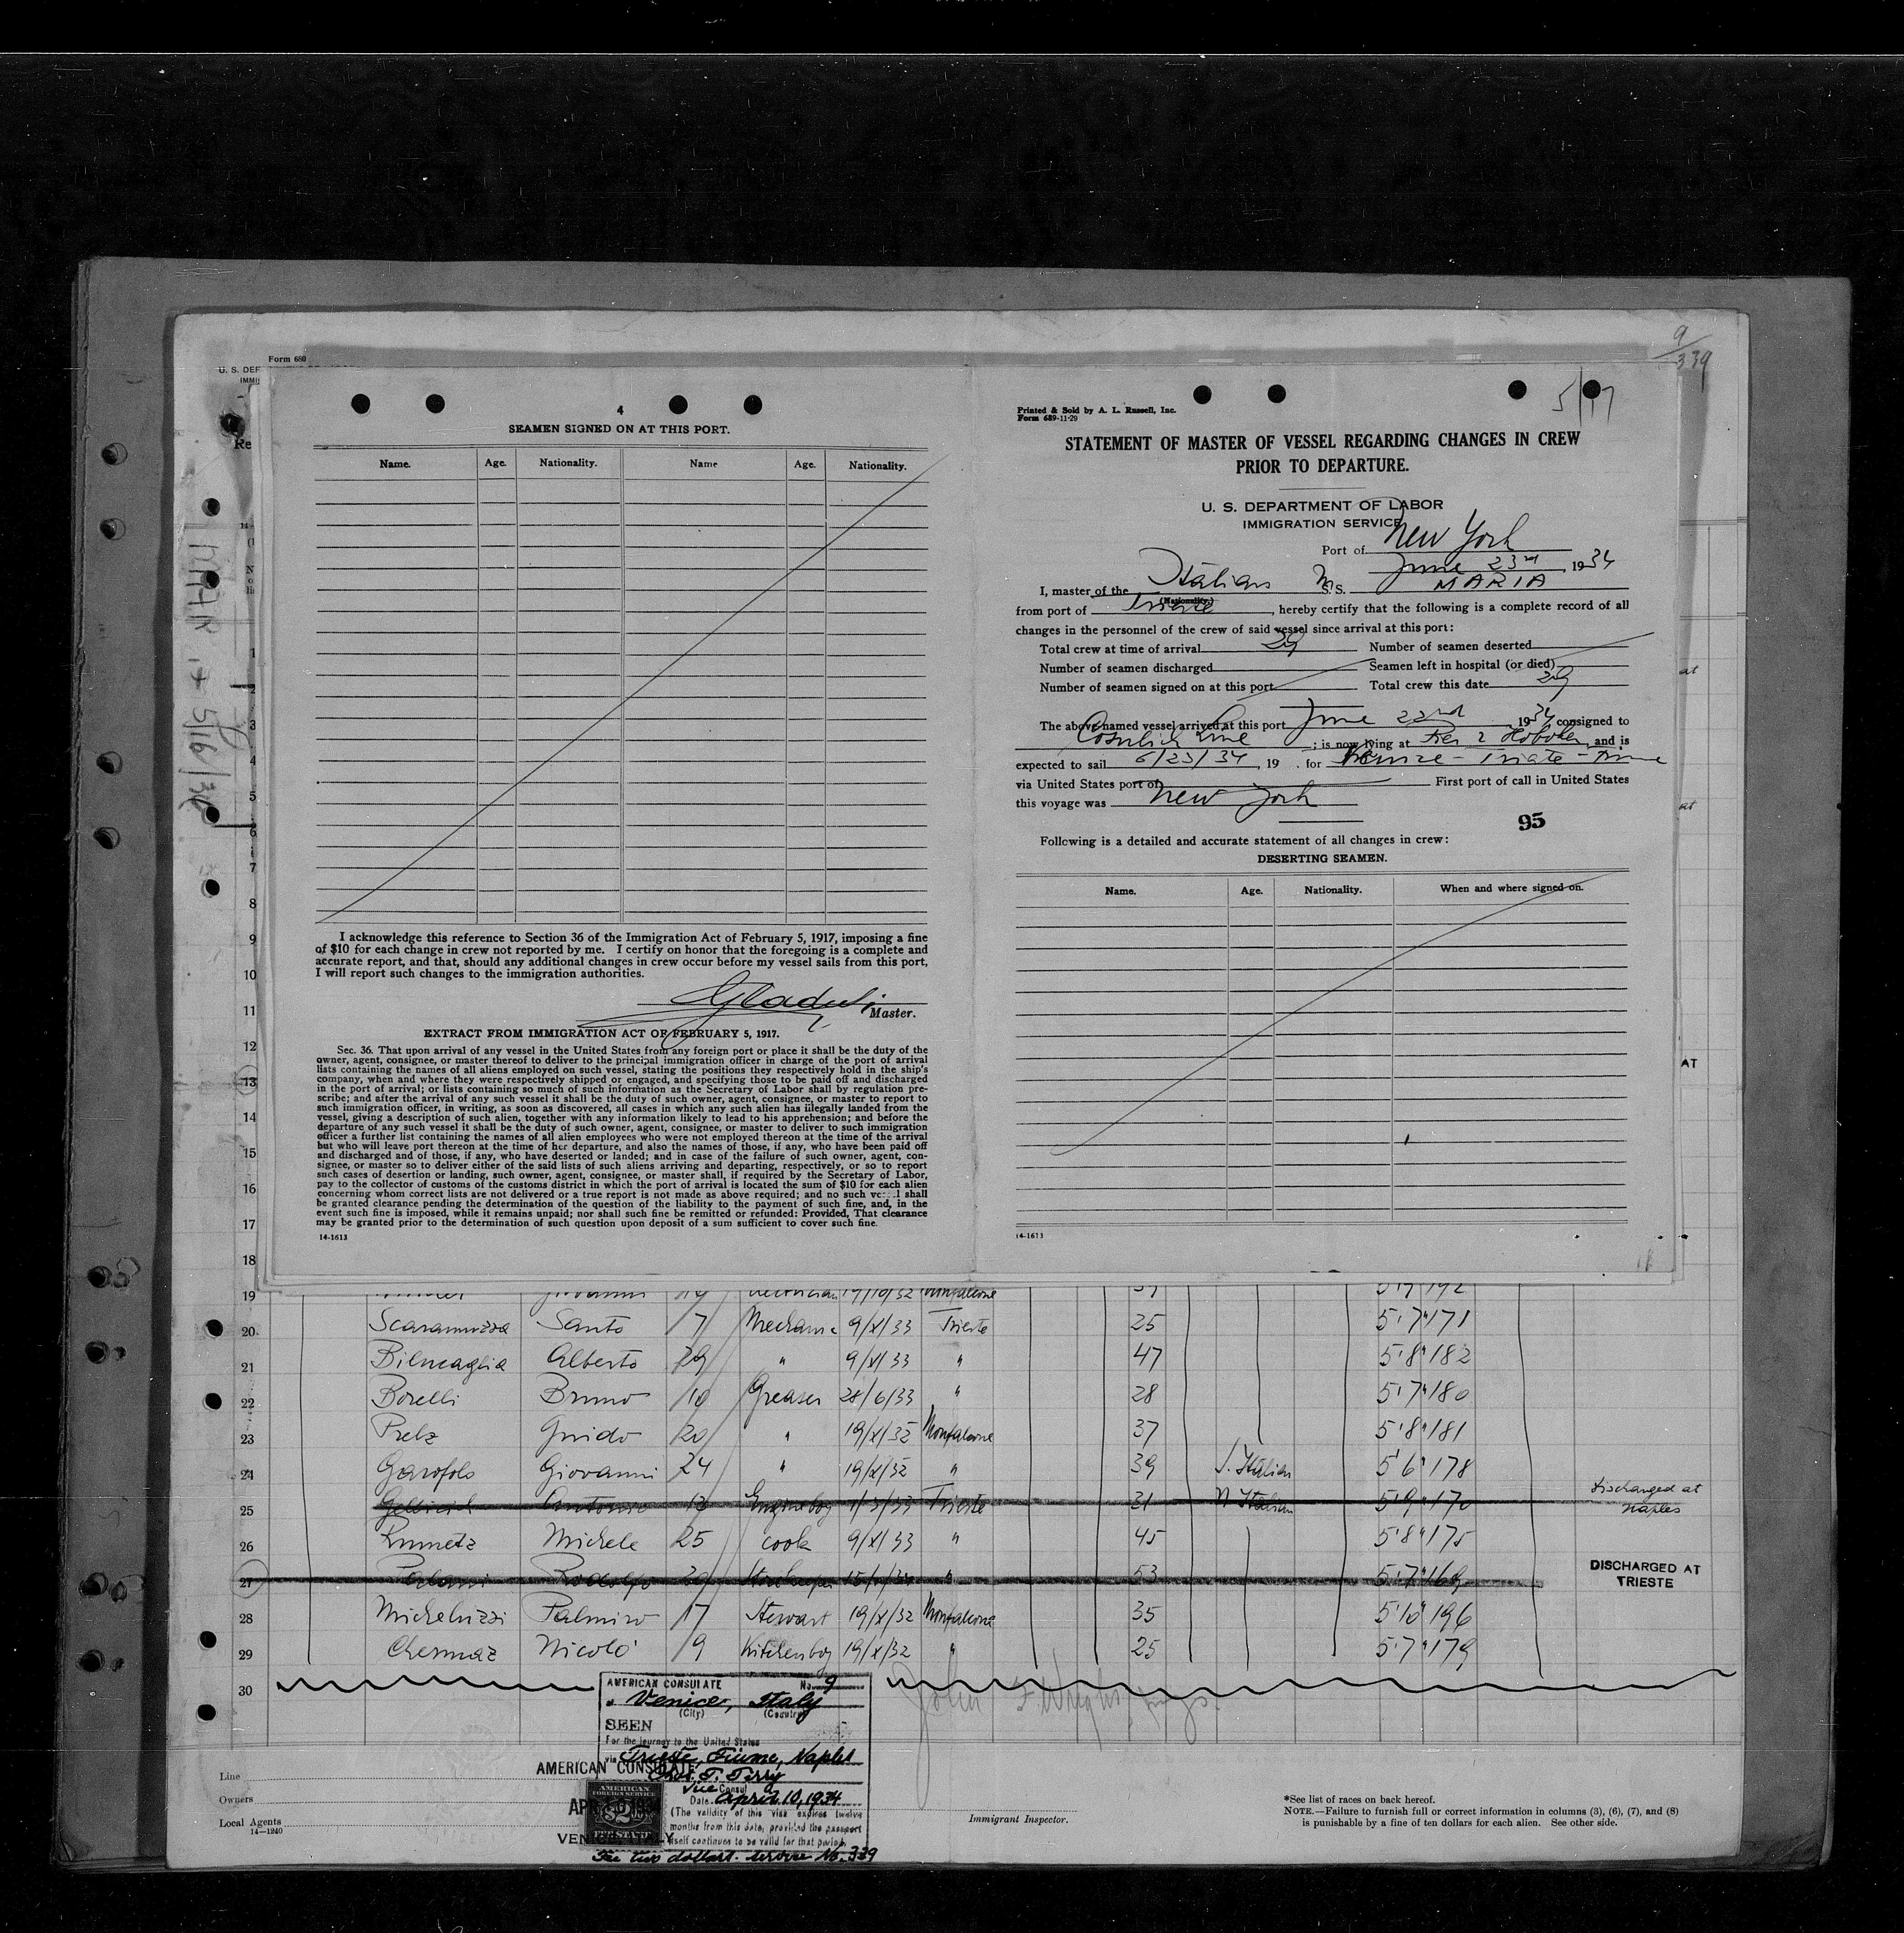 9
339
Form 680
U. S. DEP
IMMI
Re
5/17
4
SEAMEN SIGNED ON AT THIS PORT.
Name. Age. Nationality. Name Age. Nationality.
I acknowledge this reference to Section 36 of the Immigration Act of February 5, 1917, imposing a fine
of $10 for each change in crew not reported by me. I certify on honor that the foregoing is a complete and
accurate report, and that, should any additional changes in crew occur before my vessel sails from this port,
I will report such changes to the immigration authorities.
Master.
EXTRACT FROM IMMIGRATION ACT OF FEBRUARY 5, 1917.
Sec. 36. That upon arrival of any vessel in the United States from any foreign port or place it shall be the duty of the
owner, agent, consignee, or master thereof to deliver to the principal immigration officer in charge of the port of arrival
lists containing the names of all aliens employed on such vessel, stating the positions they respectively hold in the ship's
company, when and where they were respectively shipped or engaged, and specifying those to be paid off and discharged
in the port of arrival; or lists containing so much of such information as the Secretary of Labor shall by regulation pre-
scribe; and after the arrival of any such vessel it shall be the duty of such owner, agent, consignee, or master to report to
such immigration officer, in writing, as soon as discovered, all cases in which any such alien has illegally landed from the
vessel, giving a description of such alien, together with any information likely to lead to his apprehension; and before the
departure of any such vessel it shall be the duty of such owner, agent, consignee, or master to deliver to such immigration
officer a further list containing the names of all alien employees who were not employed thereon at the time of the arrival
but who will leave port thereon at the time of her departure, and also the names of those, if any, who have been paid off
and discharged and of those, if any, who have deserted or landed; and in case of the failure of such owner, agent, con-
signee, or master so to deliver either of the said lists of such aliens arriving and departing, respectively, or so to report
such cases of desertion or landing, such owner, agent, consignee, or master shall, if required by the Secretary of Labor,
pay to the collector of customs of the customs district in which the port of arrival is located the sum of $10 for each alien
concerning whom correct lists are not delivered or a true report is not made as above required; and no such shall
be granted clearance pending the determination of the question of the liability to the payment of such fine, and, in the
event such fine is imposed, while it remains unpaid; nor shall such fine be remitted or refunded: Provided, That clearance
may be granted prior to the determination of such question upon deposit of a sum sufficient to cover such fine.
14-1613
Printed & Sold by A. L. Russell, Inc.
Form 689-11-29
STATEMENT OF MASTER OF VESSEL REGARDING CHANGES IN CREW
PRIOR TO DEPARTURE.
U. S. DEPARTMENT OF LABOR
IMMIGRATION SERVICE
Port of New York
June 23rd, 1934
I, master of the Italian M S.S. MARIA
(Nationality.)
from port of Trieste, hereby certify that the following is a complete record of all
changes in the personnel of the crew of said vessel since arrival at this port:
Total crew at time of arrival 29 Number of seamen deserted
Number of seamen discharged Seamen left in hospital (or died)
Number of seamen signed on at this port Total crew this date 29
The above-named vessel arrived at this port June 22nd, 1934 consigned to
Cosulich Line; is now lying at Pier 2 Hoboken, and is
expected to sail 6/23/34, 19 . for Venice - Trieste - Fiume
via United States port of First port of call in United States
this voyage was New York
95
Following is a detailed and accurate statement of all changes in crew:
DESERTING SEAMEN.
Name. Age. Nationality. When and where signed on.
14-1613
1
2
3
4
5
6
7
8
9
10
11
12
13
14
15
16
17
18
at
at
AT
19 Giovanni 19/10/32 Monfalcone 5'7" 192
20 Scaramuzza Santo 7 Mechanic 9/X/33 Trieste 25 5'7" 171
21 Bilucaglia Alberto 29 " 9/X/33 " 47 5'8" 182
22 Borelli Bruno 10 Greaser 28/6/33 " 28 5'7" 180
23 Prelz Guido 20 " 19/X/32 Monfalcone 37 5'8" 181
24 Garofolo Giovanni 24 " 19/X/32 " 39 S. Italian 5'6" 178
25 Antonio 13 Engineboy 1/3/33 Trieste 31 N Italian 5'9" 170 Discharged at Naples
26 Rumetz Michele 25 cook 9/X/33 " 45 5'8" 175
27 Rodolfo 30 Storekeeper " 53 5'7" 169 DISCHARGED AT TRIESTE
28 Micheluzzi Palmiro 17 Stewart 19/X/32 Monfalcone 35 5'10" 196
29 Chermaz Nicolo' 9 Kitchenboy 19/X/32 " 25 5'7" 179
30
AMERICAN CONSULATE No. 9
at Venice, Italy
(City) (Country)
SEEN
For the journey to the United States
via Trieste, Fiume, Naples
AMERICAN CONSULATE
T. Terry
Vice Consul
Date April 10, 1934
(The validity of this visa expires twelve
months from this date, provided the passport
itself continues to be valid for that period.
Fee two dollars. Service No. 339
AMERICAN
FOREIGN SERVICE
$2
APR 10 1934
VENICE, ITALY
John F. Wright
Line
Owners
Local Agents
14—1240
Immigrant Inspector.
*See list of races on back hereof.
NOTE.—Failure to furnish full or correct information in columns (3), (6), (7), and (8)
is punishable by a fine of ten dollars for each alien. See other side.